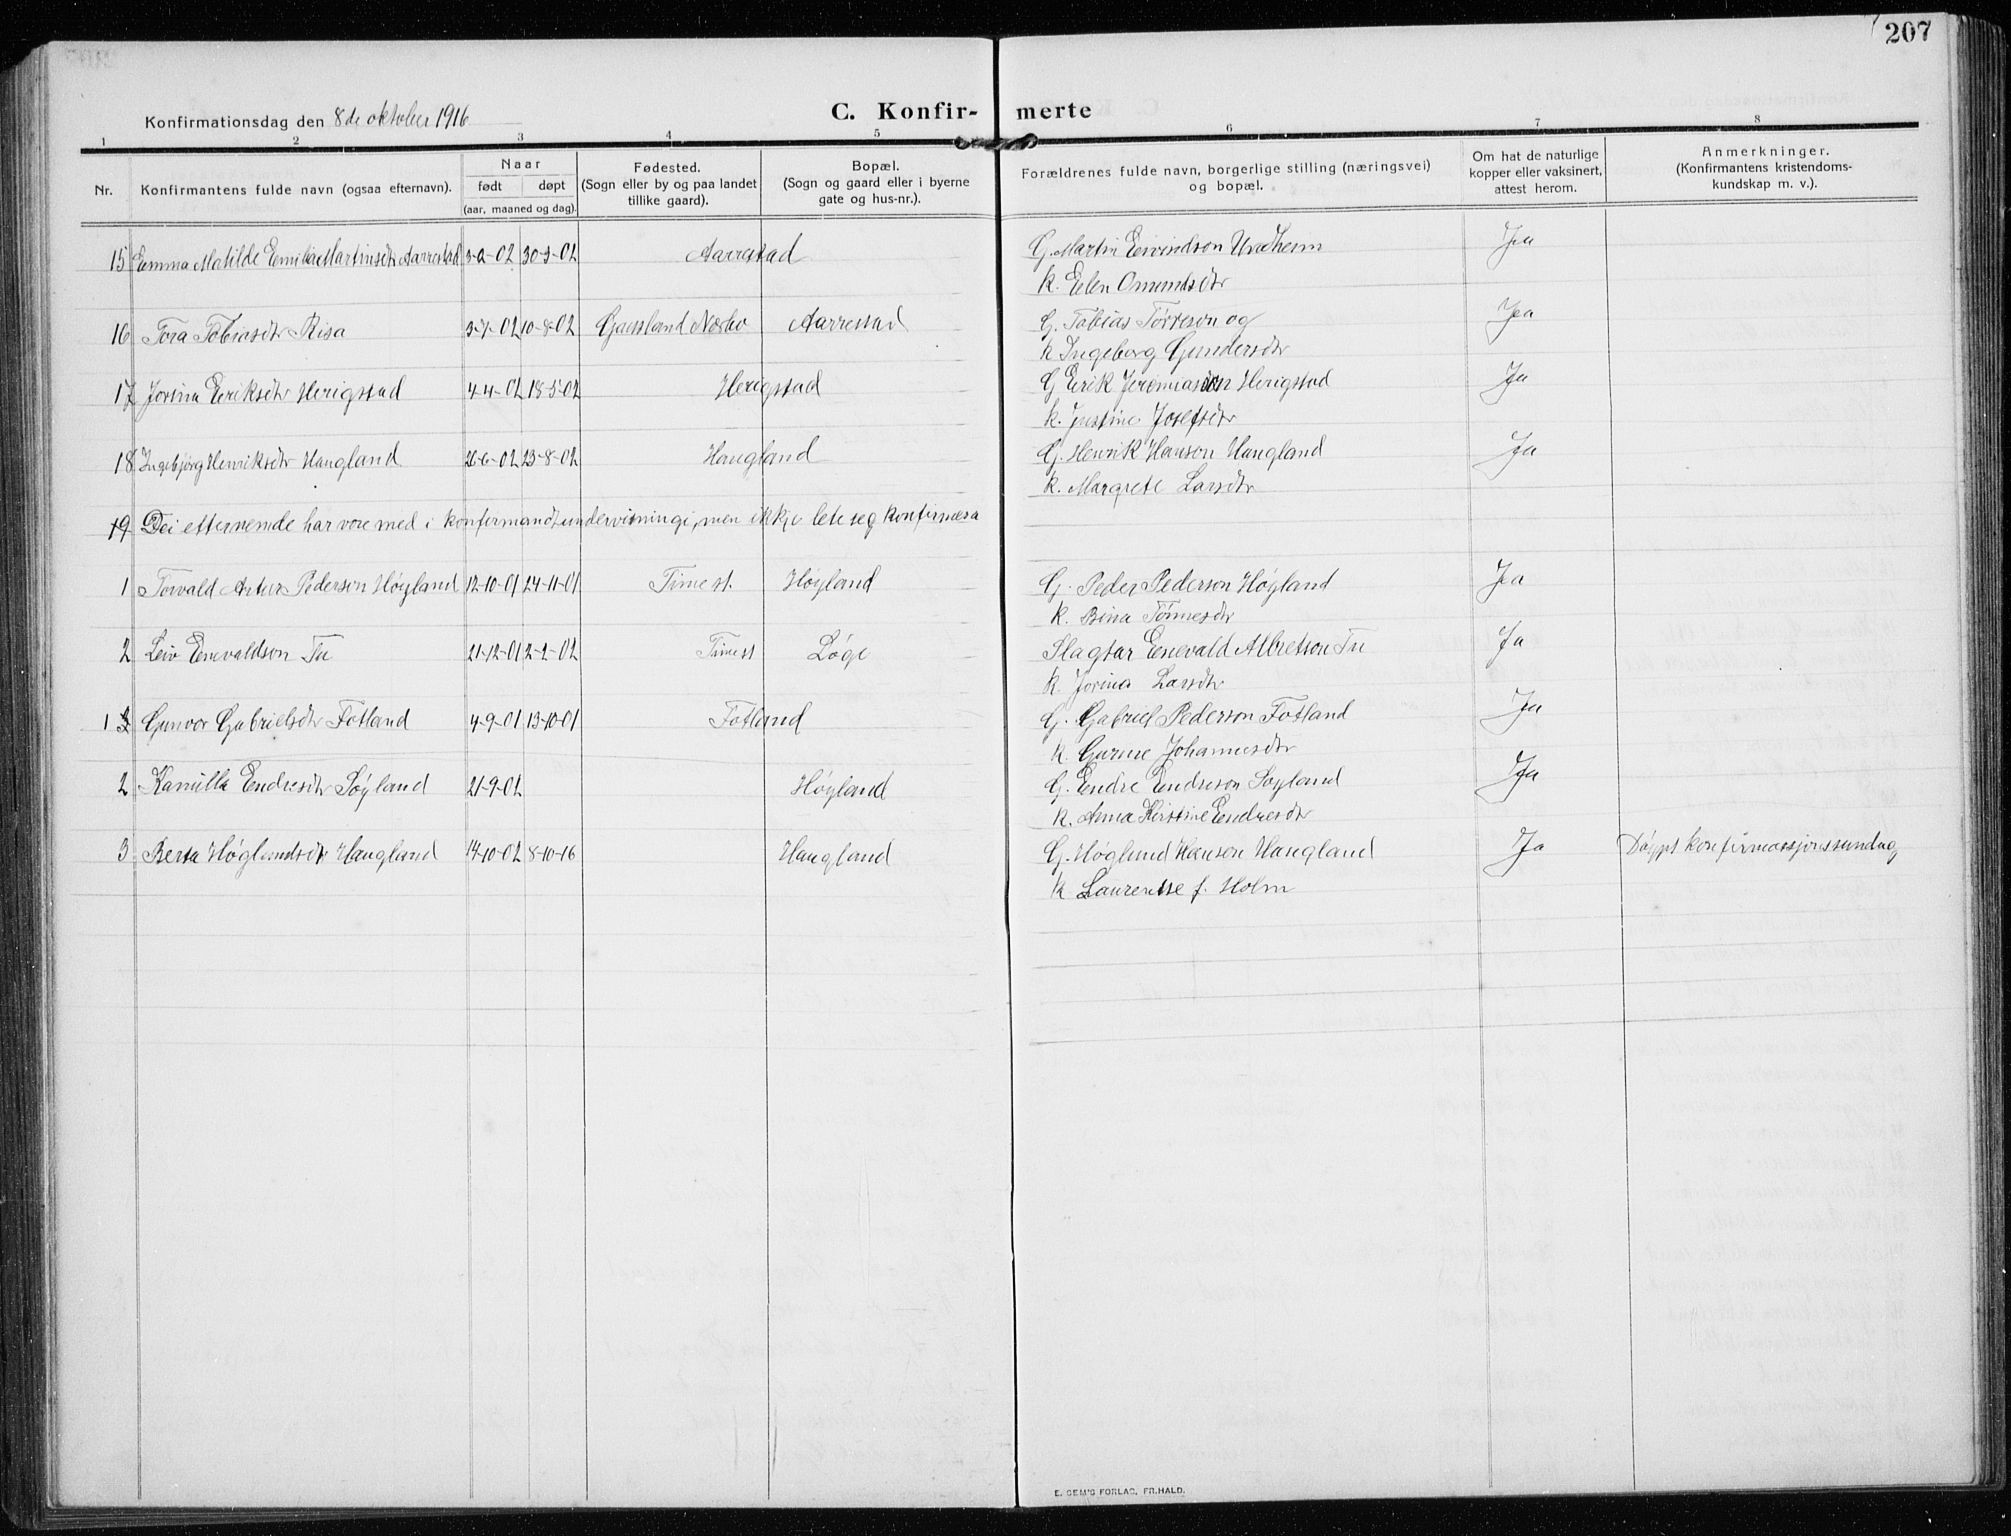 207
Konfirmationsdag den 8de oktober 1916
C. Konfir- merte
1 2 3 4 5 6 7 8
Nr. Konfirmantens fulde navn (ogsaa efternavn). Naar født døpt (aar, maaned og dag). Fødested. (Sogn eller by og paa landet tillike gaard). Bopæl. (Sogn og gaard eller i byerne gate og hus-nr.). Forældrenes fulde navn, borgerlige stilling (næringsvei) og bopæl. Om hat de naturlige kopper eller vaksinert, attest herom. Anmerkninger. (Konfirmantens kristendoms-kundskap m. v.).
15 Emma Matilde Emilia Martinsdtr Aarrestad 3-2-02 30-3-02 Aarrestad G. Martin Eivindson Ja
k. Elen Omundsdtr
16 Tora Tobiasdtr Risa 3-7-02 10-8-02 Gausland Nærbo Aarrestad G. Tobias Tørreson og Ja
k Ingeborg Gundersdtr
17 Jorina Eriksdtr Herigstad 4-4-02 18-5-02 Herigstad G Eerik Jeremiasson Herigstad Ja
k. Justine Josefsdtr
18 Ingebjørg Henriksdtr Haugland 26-6-02 23-8-02 Haugland G. Henrik Hanson Haugland Ja
k. Margrete Larsdtr
19 Dei etternemde har vore med i konfirmandundervisningi, men ikkje lete seg konfirmera
1 Torvald Artur Pederson Høyland 12-10-01 24-11-01 Time st. Høyland G. Peder Pederson Høyland Ja
k. Bina Tønnesdtr
2 Leiv Enevaldson Tu 21-12-01 2-2-02 Time st Løge Slagtar Enevald Albretson Tu Ja
k. Jorina Larsdtr
1 3 Gunvor Gabrielsdtr Fotland 4-9-01 13-10-01 Fotland G. Gabriel Pederson Fotland Ja
k. Gurine Johannesdtr
2 Kamilla Endresdtr Søyland 21-9-02 Høyland G. Endre Endreson Søyland Ja
k. Anna Kirstine Endresdtr
3 Berta Høglundsdtr Haugland 14-10-02 8-10-16 Haugland G. Høglund Hanson Haugland Ja Døypt konfirmasjonssundag
k Laurentse f. Holm
E. SEM'S FORLAG, FR.HALD.